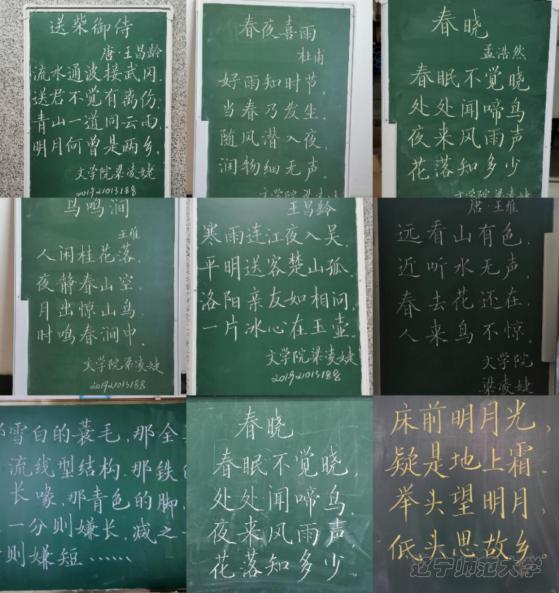 送柴御侍
唐·王昌龄
流水通波接武冈,
送君不觉有离伤。
青山一道同云雨,
明月何曾是两乡。
文学院梁凌婕
201921013188
春夜喜雨
杜甫
好雨知时节,
当春乃发生。
随风潜入夜,
润物细无声。
文学院梁凌婕
春晓
孟浩然
春眠不觉晓
处处闻啼鸟
夜来风雨声
花落知多少
文学院梁凌婕
鸟鸣涧
王维
人闲桂花落,
夜静春山空,
月出惊山鸟,
时鸣春涧中.
文学院梁凌婕
201921013188
王昌龄
寒雨连江夜入吴,
平明送客楚山孤.
洛阳亲友如相问,
一片冰心在玉壶.
文学院梁凌婕
201921013188
唐·王维
远看山有色,
近听水无声.
春去花还在,
人来鸟不惊.
文学院
梁凌婕
雪白的蓑毛,那全
流线型结构.那铁
长喙,那青色的脚,
一分则嫌长,减之一
则嫌短……
春晓
春眠不觉晓
处处闻啼鸟.
夜来风雨声
花落知多少.
床前明月光,
疑是地上霜.
举头望明月,
低头思故乡.
辽宁师范大学